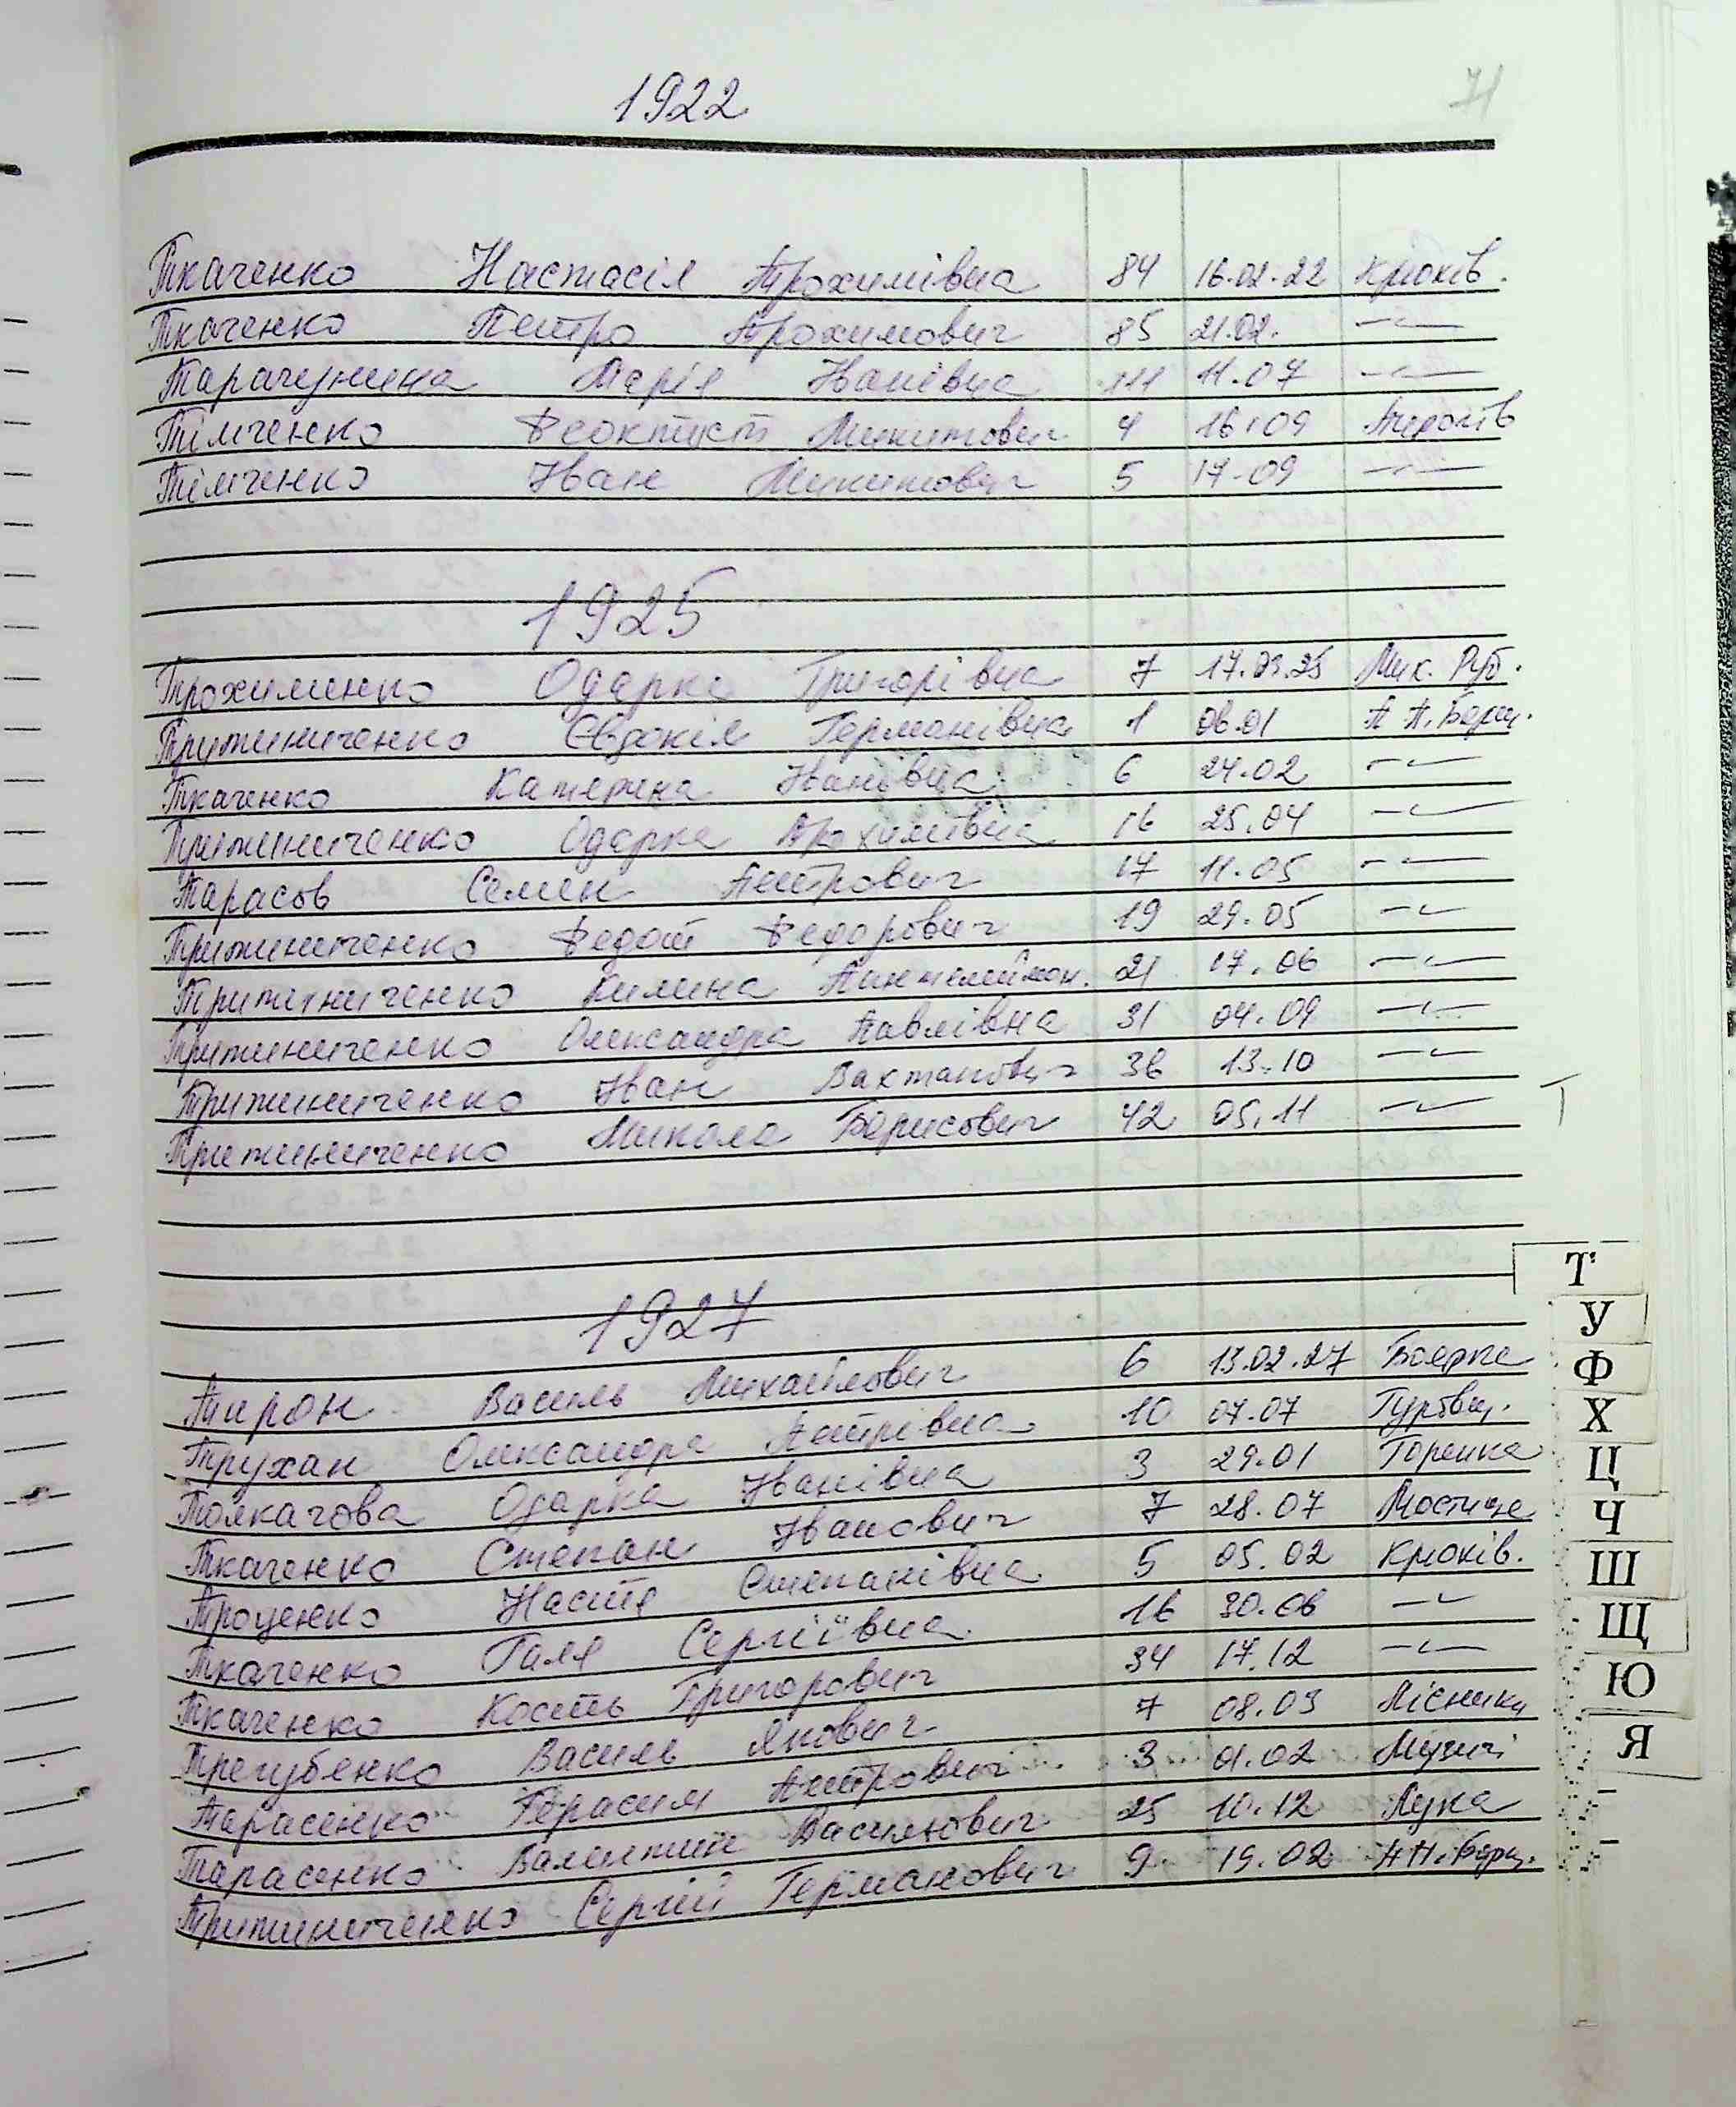 1922
71
Ткаченко Настасія Трохимівна 84 16.02.22 Крюків.
Ткаченко Петро Трохимович 85 21.02. —"—
Тарачунина Марія Іванівна 111 11.07 —"—
Тімченко Феоктист Микитович 4 16.09
Тімченко Іван Микитович 5 17-09 —"—
1925
Трохименко Одарка Григорівна 7 17.03.25 Мик. Руб.
Притиниченко Євдокія Германівна 1 06.01 П П. Борщ.
Ткаченко Катерина Іванівна 6 24.02 —"—
Одарка Трохимівна 16 25.04 —"—
Тарасов Семен Петрович 17 11.05 —"—
Федот Федорович 19 29.05 —"—
Килина Пантелеймон. 21 17.06 —"—
Олександра Павлівна 31 04.09 —"—
Іван Вахтанович 36 13.10 —"—
Микола Борисович 42 05.11 —"—
Т
1927
Тирон Василь Михайлович 6 13.02.27 Боярка
Трухан Олександра Петрівна 10 07.07 Гурівщ.
Толкачова Одарка Іванівна 3 29.01 Горенка
Ткаченко Степан Іванович 7 28.07 Мостище
Троценко Настя Степанівна 5 05.02 Крюків.
Ткаченко Галя Сергіївна 16 30.06 —"—
Ткаченко Кость Григорович 34 17.12 —"—
Трегубенко Василь Якович 7 08.03 Лісники
Тарасенко Герасим Петрович 3 01.02 Музичі
Тарасенко Валентин Васильович 25 10.12 Лука
Сергій Германович 9 19.02 П П. Борщ.
Т
У
Ф
Х
Ц
Ч
Ш
Щ
Ю
Я